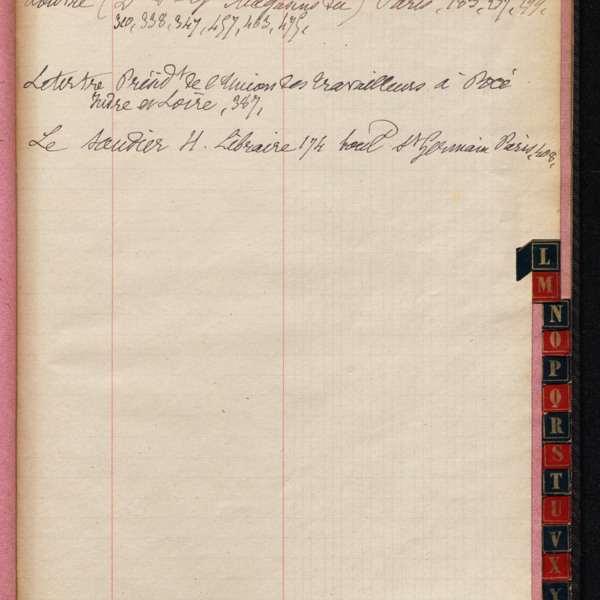 Louvre (Dr des Gds Magasins du) Paris, 185, 257, 299,
310, 338, 347, 457, 463, 475,
Letertre Présidt de l'Union des travailleurs à Pocé
Indre et Loire, 387,
Le Soudier H. Libraire 174 boul St Germain Paris, 408,
L
M
N
O
P
Q
R
S
T
U
V
X
Y